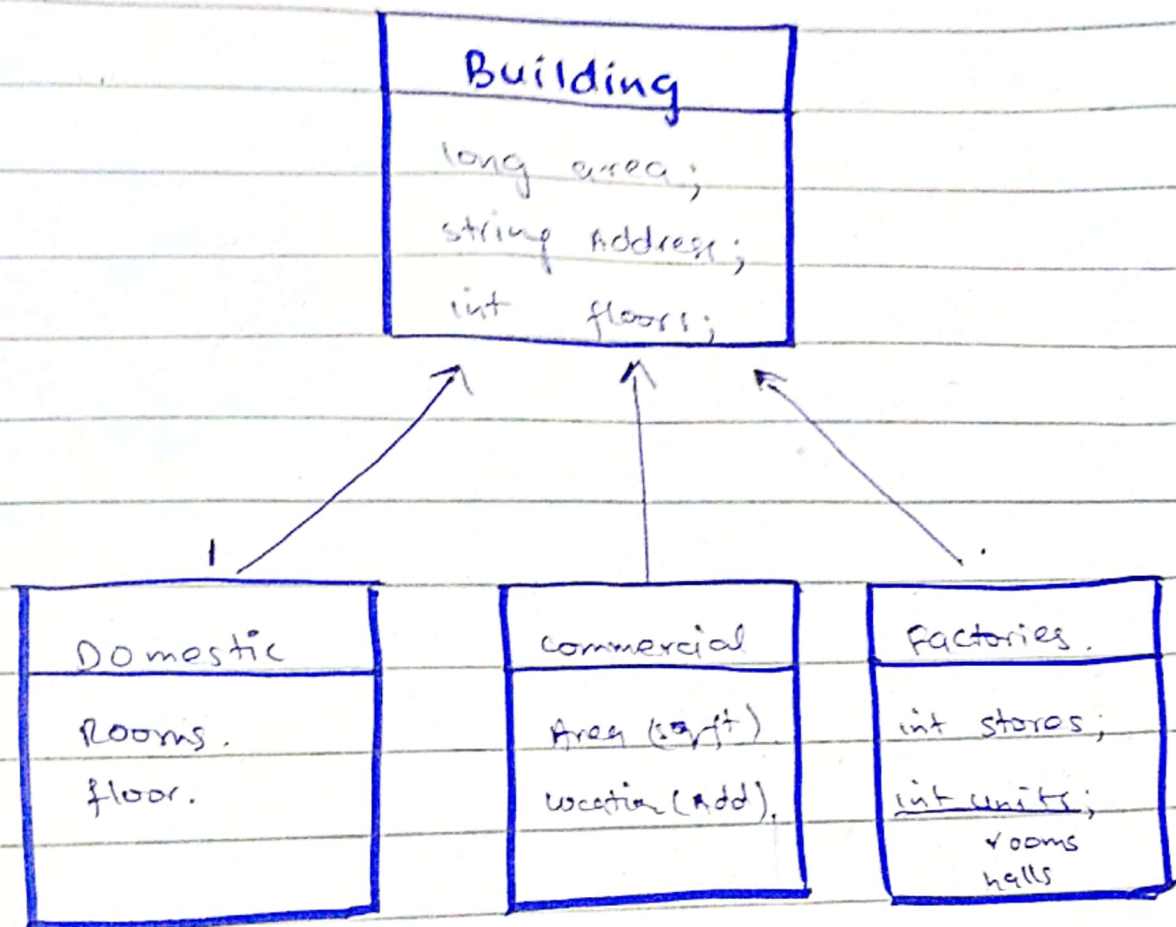 Building
long area;
string Address;
int floors;
Domestic
Rooms.
floor.
Commercial
Area (sqft)
Location (Add).
Factories.
int stores;
int units;
rooms
halls